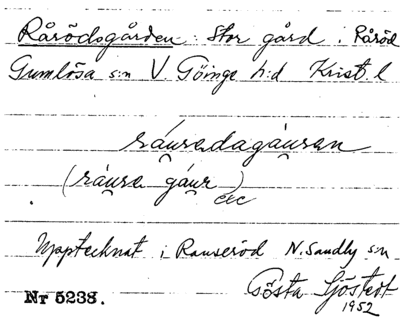 Rårödsgården: Stor gård i Råröd
Gumlösa s:n V. Göinge h:d Krist. l
ráu̯sadagáu̯ran
(ráu̯sa gáu̯r) etc
Upptecknat i Rauseröd N. Sandby s:n
Gösta Sjöstedt
1952
Nr 5238.